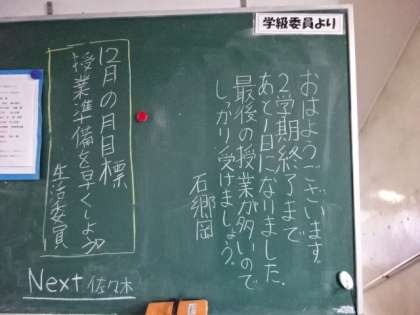 学級委員より
おはようございます。
2学期終了まで
あと1日になりました。
最後の授業が多いので
しっかり受けましょう。
石郷岡
12月の月目標
授業準備を早くしよう
生活委員
Next 佐々木